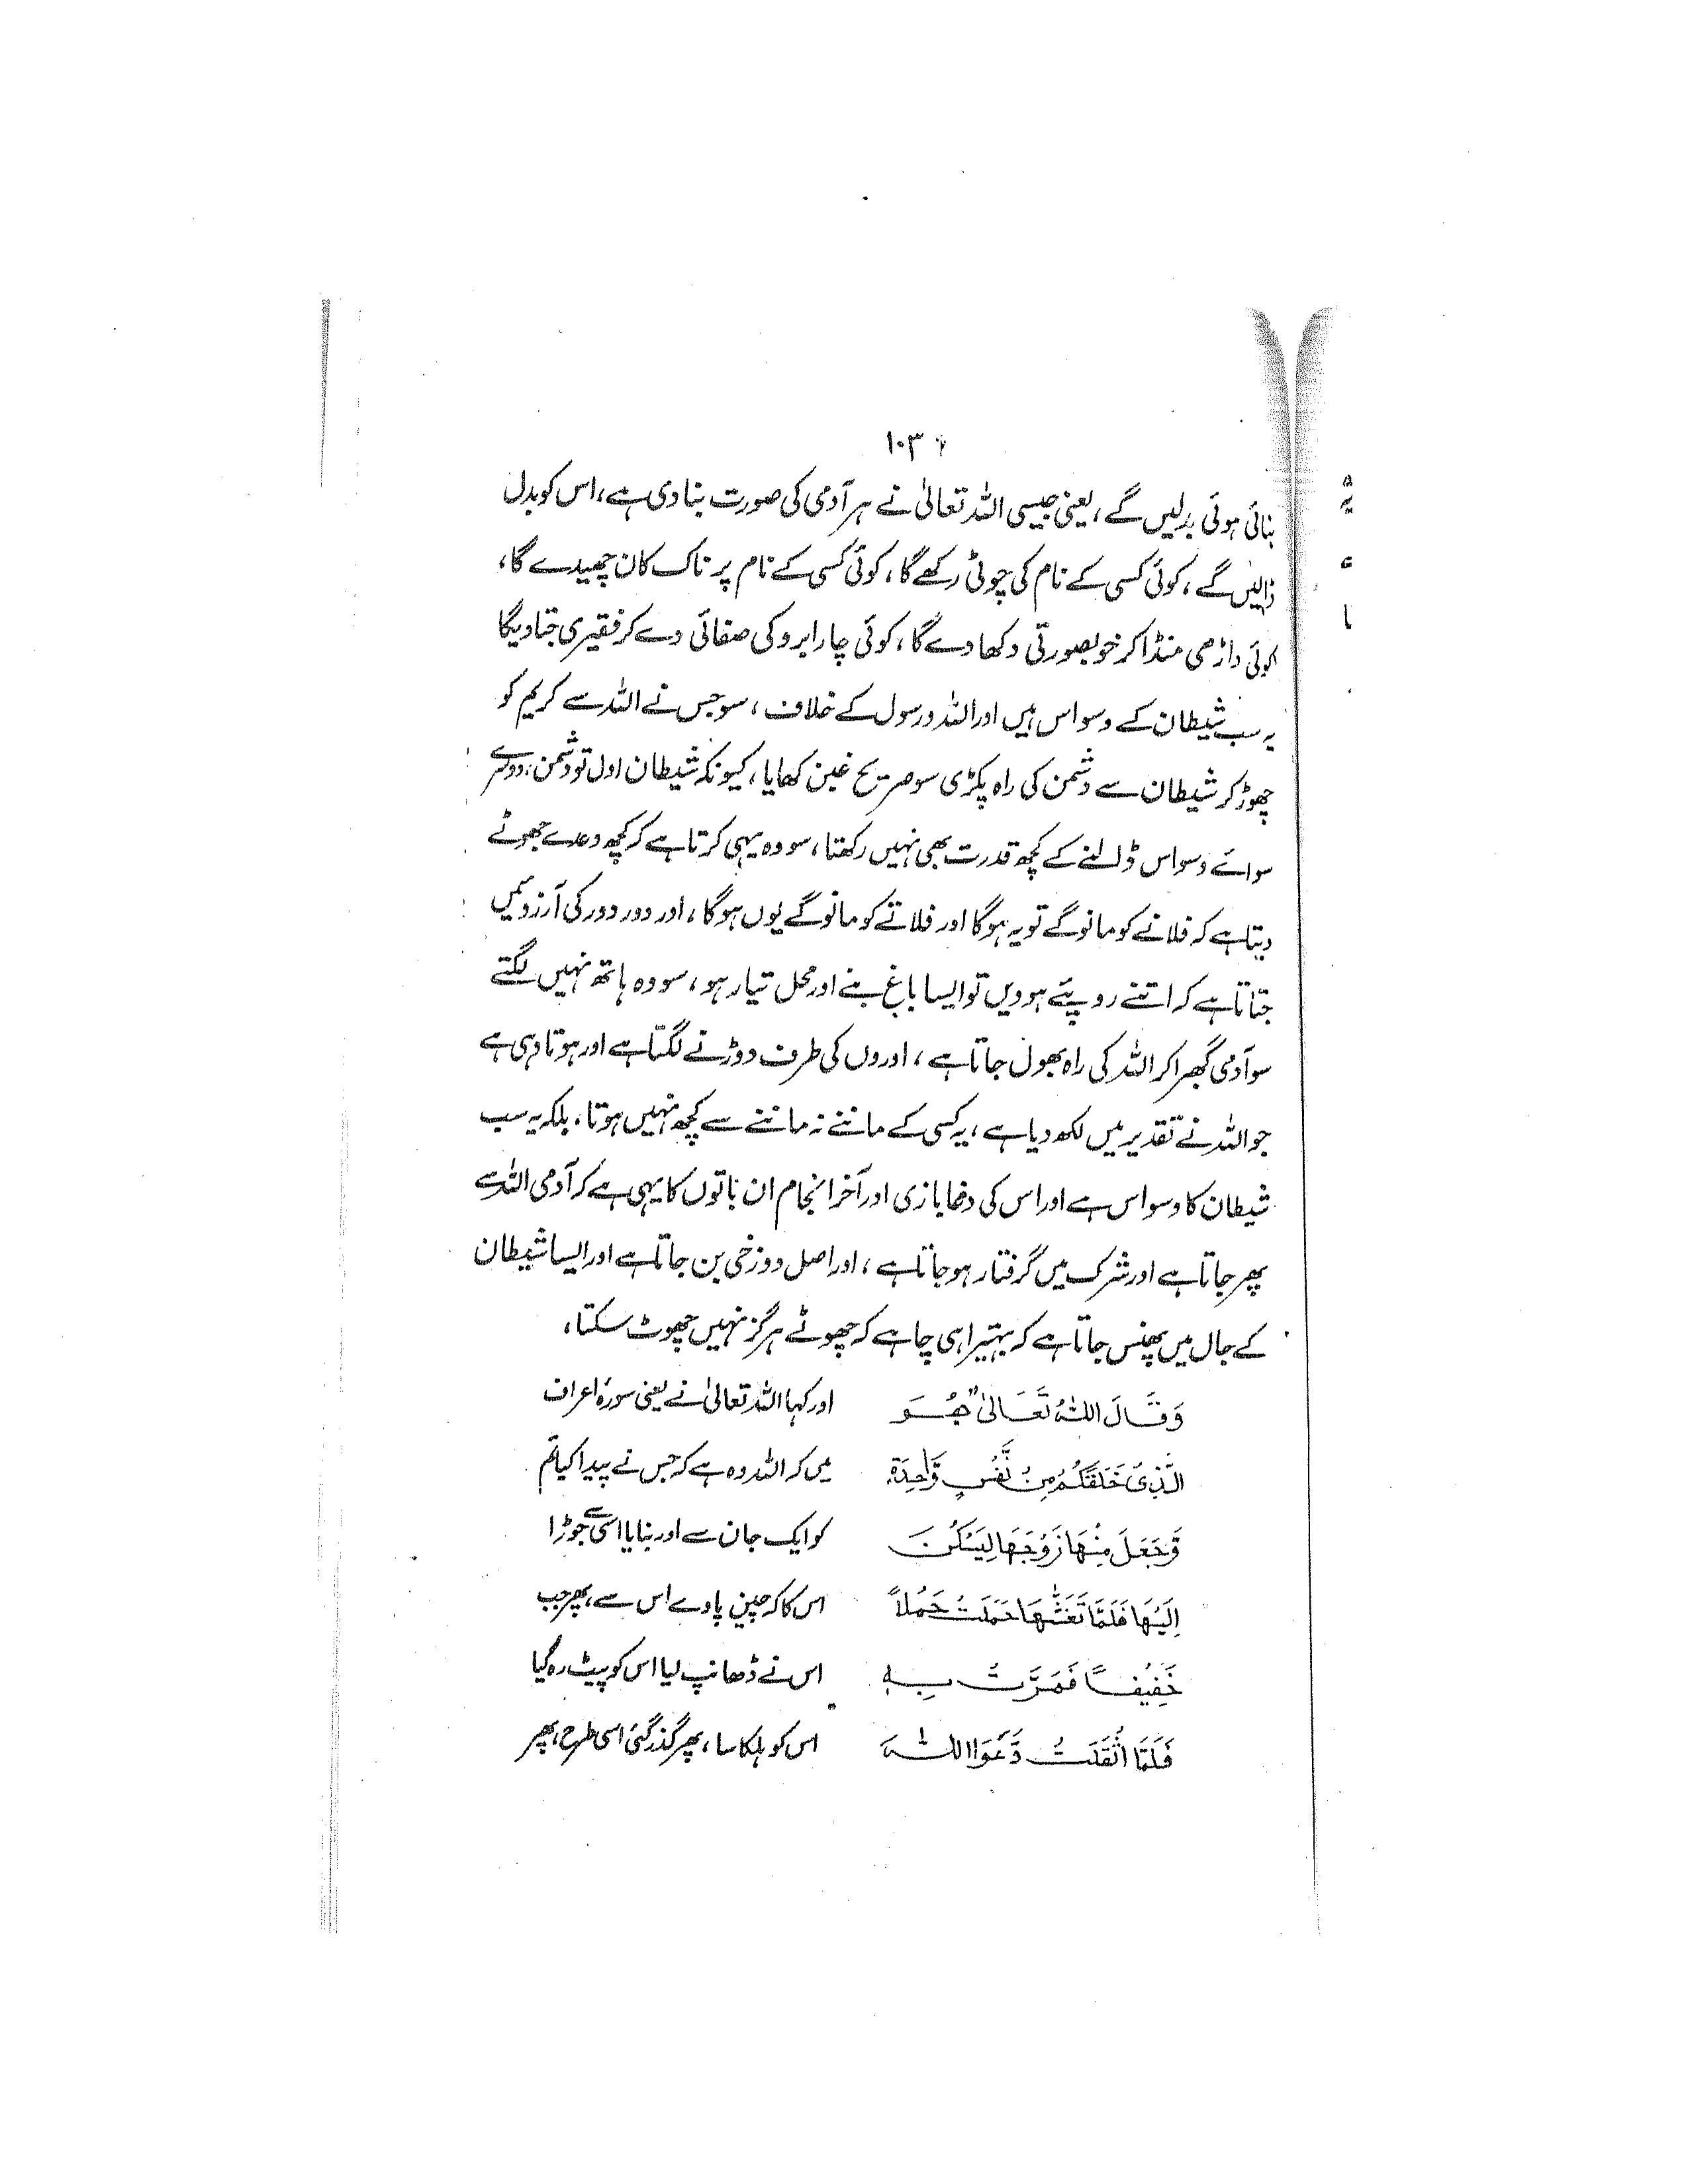 ۱۰۳
بنائی ہوئی بدلیں گے، یعنی جیسی اللہ تعالیٰ نے ہر آدمی کی صورت بنا دی ہے، اس کو بدل
ڈالیں گے، کوئی کسی کے نام کی چوٹی رکھے گا، کوئی کسی کے نام پر ناک کان چھیدے گا،
کوئی داڑھی منڈا کر خوبصورتی دکھا دے گا، کوئی چار ابرو کی صفائی دے کر فقیری جتا دیگا
یہ سب شیطان کے وسواس ہیں اور اللہ و رسول کے خلاف، سو جس نے اللہ سے کریم کو
چھوڑ کر شیطان سے دشمن کی راہ پکڑی سو صریح غبن کھایا، کیونکہ شیطان اول تو دشمن، دوسرے
سوائے وسواس ڈالنے کے کچھ قدرت بھی نہیں رکھتا، سو وہ یہی کرتا ہے کہ کچھ وعدے جھوٹے
دیتا ہے کہ فلانے کو مانو گے تو یہ ہوگا اور فلانے کو مانو گے یوں ہوگا، اور دور دور کی آرزوئیں
جتاتا ہے کہ اتنے روپئے ہوویں تو ایسا باغ بنے اور محل تیار ہو، سو وہ ہاتھ نہیں لگتے
سو آدمی گھبرا کر اللہ کی راہ بھول جاتا ہے، اوروں کی طرف دوڑنے لگتا ہے اور ہوتا وہی ہے
جو اللہ نے تقدیر میں لکھ دیا ہے، یہ کسی کے ماننے نہ ماننے سے کچھ نہیں ہوتا، بلکہ یہ سب
شیطان کا وسواس ہے اور اس کی دغابازی اور آخر انجام ان باتوں کا یہی ہے کہ آدمی اللہ سے
پھر جاتا ہے اور شرک میں گرفتار ہو جاتا ہے، اور اصل دوزخی بن جاتا ہے اور ایسا شیطان
کے جال میں پھنس جاتا ہے کہ بہتیرا ہی چاہے کہ چھوٹے ہرگز نہیں چھوٹ سکتا،
وَقَالَ اللّٰهُ تَعَالٰى هُوَ
الَّذِىْ خَلَقَكُمْ مِنْ نَّفْسٍ وَّاحِدَةٍ
وَّجَعَلَ مِنْهَا زَوْجَهَا لِيَسْكُنَ
اِلَيْهَا فَلَمَّا تَغَشّٰهَا حَمَلَتْ حَمْلًا
خَفِيْفًا فَمَرَّتْ بِهٖ
فَلَمَّا اَثْقَلَتْ دَّعَوَا اللّٰهَ
اور کہا اللہ تعالیٰ نے یعنی سورۂ اعراف
میں کہ اللہ وہ ہے کہ جس نے پیدا کیا تم
کو ایک جان سے اور بنایا اسی سے جوڑا
اس کا کہ چین پاوے اس سے، پھر جب
اس نے ڈھانپ لیا اس کو پیٹ رہ گیا
اس کو ہلکا سا، پھر گذر گئی اسی طرح، پھر